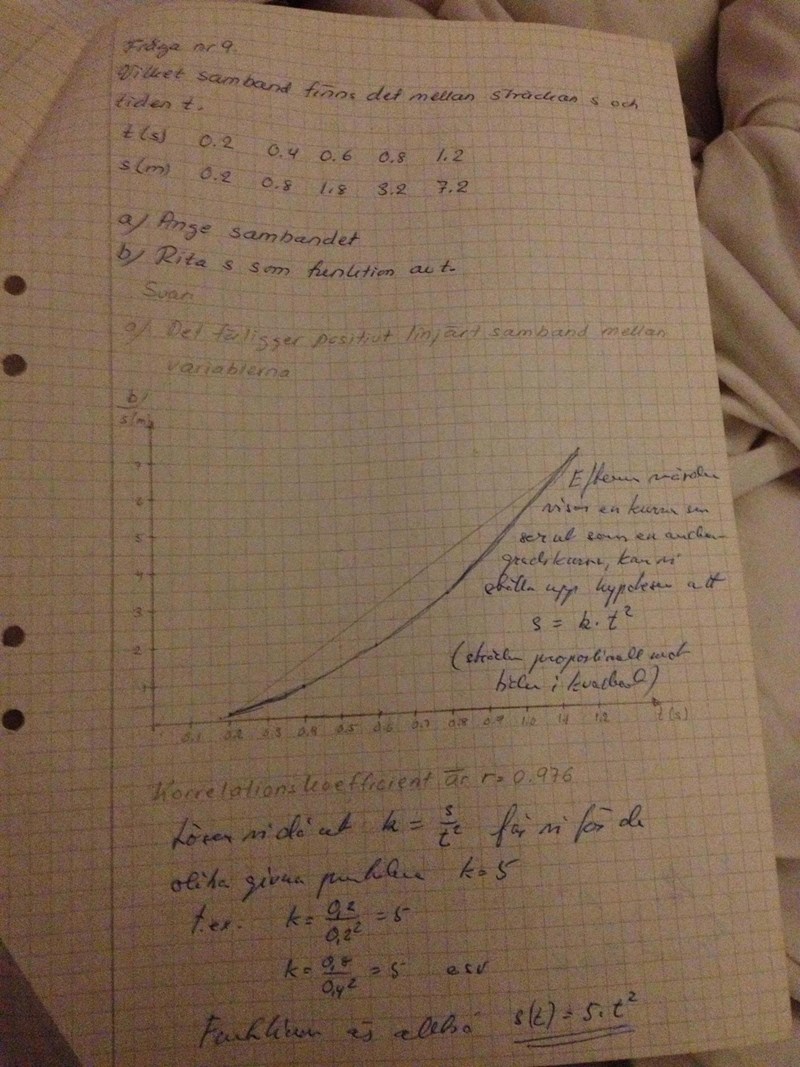 Fråga nr 9.
Vilket samband finns det mellan sträckan s och
tiden t.
t(s) 0.2 0.4 0.6 0.8 1.2
s(m) 0.2 0.8 1.8 3.2 7.2
a) Ange sambandet
b) Rita s som funktion av t.
Svar
a) Det föligger positivt linjärt samband mellan
variablerna
b)
s(m)
7
6
5
4
3
2
1
0.1 0.2 0.3 0.4 0.5 0.6 0.7 0.8 0.9 1.0 1.1 1.2 t(s)
Eftersom värden
visar en kurva som
ser ut som en andra-
gradskurva, kan vi
ställa upp hypotesen att
s = k · t²
(sträckan proportionell mot
tiden i kvadrat)
Korrelationskoefficient är r = 0.976
Löser vi då ut k = s/t² får vi för de
olika givna punkterna k = 5
t.ex. k = 0,2/0,2² = 5
k = 0,8/0,4² = 5 osv
Funktionen är alltså s(t) = 5 · t²